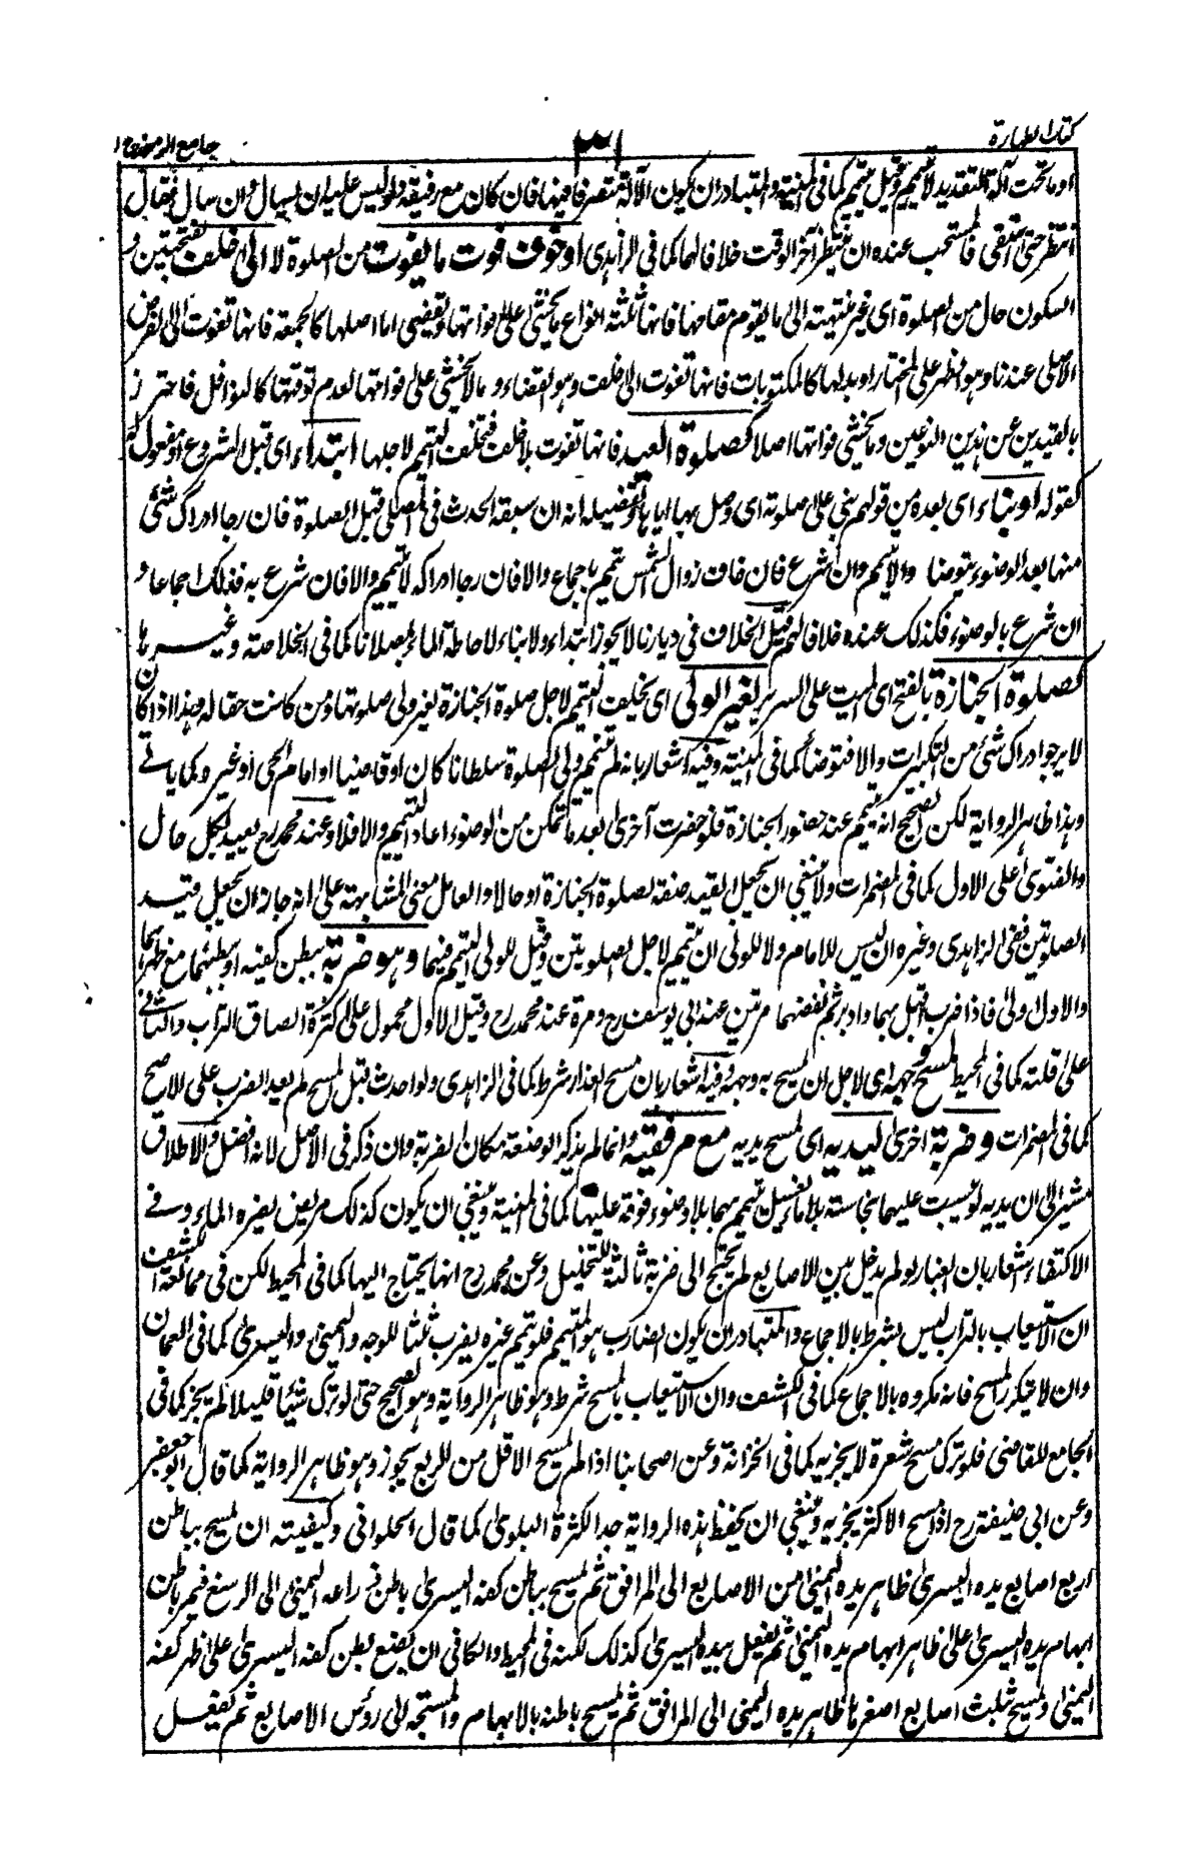 كتاب الطهارة
٣١
جامع الرموز ج١
او ما تحت آلة التقديد لا يتيمم وقيل يتيمم كما في المنية والمتبادر ان يكون الآلة مقتصرا فيها فان كان مع رفيقه دلو ليس عليه ان يسأل وان سأل فقال
انتظر حتى استقي فالمستحب عنده ان ينتظر آخر الوقت خلافا لهما كما في الزاهدي او خوف فوت ما يفوت من الصلوة لا الى خلف بفتحتين و
السكون حال من الصلوة اى غير منتهية الى ما يقوم مقامها فانها ثلثة انواع ما يخشى على فواتها ويقضى اما اصلها كالجمعة فانها تفوت الى الفرض
الاصلي عندنا وهو الظهر على المختار او بدلها كالمكتوبات فانها تفوت الى خلف وهو القضاء وما لا يخشى على فواتها لعدم توقتها كالنوافل فاحترز
بالقيدين عن هذين النوعين وما يخشى فواتها اصلا كصلوة العيد فانها تفوت بلا خلف فيخلف التيمم لاجلها ابتداء اى قبل الشروع
كقوله او بناء اى بعده من قولهم بنى على صلوته اى وصل بها اياها وتفصيله انه ان سبقه الحدث في المصلى قبل الصلوة فان رجا ادراك شئ
منها بعد الوضوء يتوضا والا يتيمم وان شرع فان خاف زوال الشمس تيمم باجماع والا فان رجا ادراكه لا يتيمم والا فان شرع به فكذلك اجماعا و
ان شرع بالوضوء فكذلك عنده خلافا لهم قيل الخلاف في ديارنا لا يجوز ابتداء ولا بناء لاحاطة الماء بمصلانا كما في الخلاصة وغيرها
كصلوة الجنازة بالفتح اى الميت على السرير لغير الولى اى يخلف التيمم لاجل صلوة الجنازة لغير ولى صلوتها ومن كانت حقا له وهذا اذا كان
لا يرجو ادراك شئ من التكبيرات والا فتوضأ كما في المنية وفيه اشعار بانه لم يتيمم ولى الصلوة سلطانا كان او قاضيا او امام الحى او غيره كما ياتي
وهذا ظاهر الرواية لكن الصحيح انه يتيمم عند حضور الجنازة فلو حضرت آخرى بعد ما تمكن من الوضوء اعاد التيمم والا فلا وعند محمد رح يعيد لكل حال
والفتوى على الاول كما في المضمرات ولا ينبغي ان يجعل القيد صفة لصلوة الجنازة او حالا والعامل معنى المشابهة على انه جاز ان يجعل قيد
الصلوتين ففي الزاهدى وغيره ان ليس للامام ولا للولى ان يتيمم لاجل الصلوتين وقيل للولى التيمم فيهما وهو ضربة ببطن كفيه او بطنهما مع ظهرهما
والاول اولى فاذا ضرب اقبل بهما وادبر ثم نفضهما مرتين عند ابى يوسف رح ومرة عند محمد رح وقيل الاول محمول على كثرة الصاق التراب والثاني
على قلته كما في المحيط لمسح وجهه اى لاجل ان يمسح به وجهه وفيه اشعار بان مسح العذار شرط كما في الزاهدى ولو احدث قبل المسح لم يعد الضرب على الاصح
كما في المضمرات وضربة اخرى ليديه اى لمسح يديه مع مرفقيه وانما لم يذكر الوضعة مكان الضربة وان ذكر في الاصل لانه افضل والاطلاق
مشير الى ان يديه لو يبست عليهما نجاسة بلا ماء يغسل تيمم بهما بلا وضوء فوقه عليها كما في المنية وينبغي ان يكون كذلك مريض يضره الماء وفي
الاكتفاء اشعار بان الغبار لو لم يدخل بين الاصابع لم يحتج الى ضربة ثالثة للتخليل وعن محمد رح انها يحتاج اليها كما في المحيط لكن في
ان الاستيعاب بالتراب ليس بشرط بالاجماع والمتبادر ان يكون الضارب هو المتيمم فلو تيمم غيره يضرب ثلثا للوجه واليمنى واليسرى كما في العمان
وان لا يتكرر المسح فانه مكروه بالاجماع كما في الكشف وان الاستيعاب بالمسح شرط وهو ظاهر الرواية وهو الصحيح حتى لو ترك شيئا قليلا لم يجز كما في
الجامع للقاضي فلو ترك مسح شعرة لا يجزيه كما في الخزانة وعن اصحابنا اذا لم يمسح الاقل من الربع يجوز وهو ظاهر الرواية كما قال ابو جعفر
وعن ابى حنيفة رح اذا مسح الاكثر يجزيه وينبغي ان يحفظ هذه الرواية جدا لكثرة البلوى كما قال الحلواني وكيفيته ان يمسح بباطن
اربع اصابع يده اليسرى ظاهر يده اليمنى من الاصابع الى المرافق ثم يمسح بباطن كفه اليسرى باطن ذراعه اليمنى الى الرسغ فيمر باطن
ابهام يده اليسرى على ظاهر ابهام يده اليمنى ثم يفعل بيده اليسرى كذلك لكنه في المحيط والكافي ان يضع بطن كفه اليسرى على ظهر كفه
اليمنى ويمسح بثلث اصابع اصغرها ظاهر يده اليمنى الى المرافق ثم يمسح باطنه بالابهام والمسبحة الى رؤس الاصابع ثم يفعل